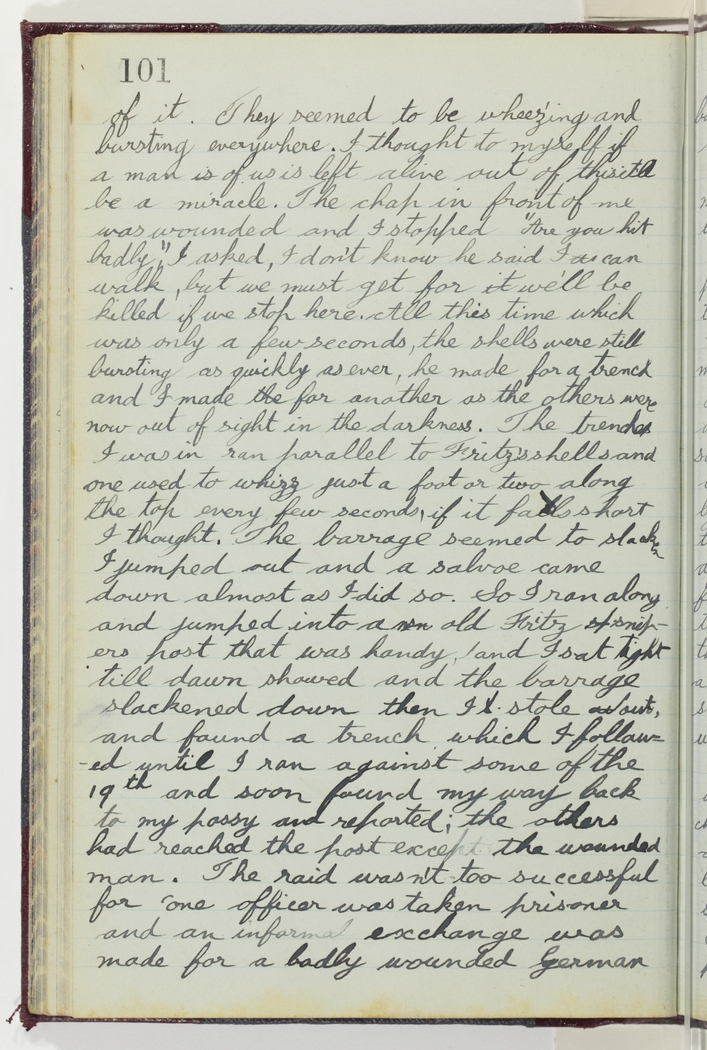 101
of it. They seemed to be wheezing and
bursting everywhere. I thought to myself if
a man is of us is left alive out of this it'll
be a miracle. The chap in front of me
was wounded and I stopped "Are you hit
badly", I asked, I don't know he said I can
walk, but we must get for it we'll be
killed if we stop here. All this time which
was only a few seconds, the shells were still
bursting as quickly as ever, he made for a trench
and I made the for another as the others were
now out of sight in the darkness. The trenches
I was in ran parallel to Fritz's shells and
one used to whizz just a foot or two along
the top every few seconds, if it falls short
I thought. The barrage seemed to slacken
I jumped out and a salvoe came
down almost as I did so. So I ran along
and jumped into a old Fritz snip-
ers post that was handy, and I sat tight
till dawn showed and the barrage
slackened down then I stole out,
and found a trench which I follow=
-ed until I ran against some of the
19th and soon found my way back
to my possy and reported; the others
had reached the post except the wounded
man. The raid wasn't too successful
for one officer was taken prisoner
and an informal exchange was
made for a badly wounded German